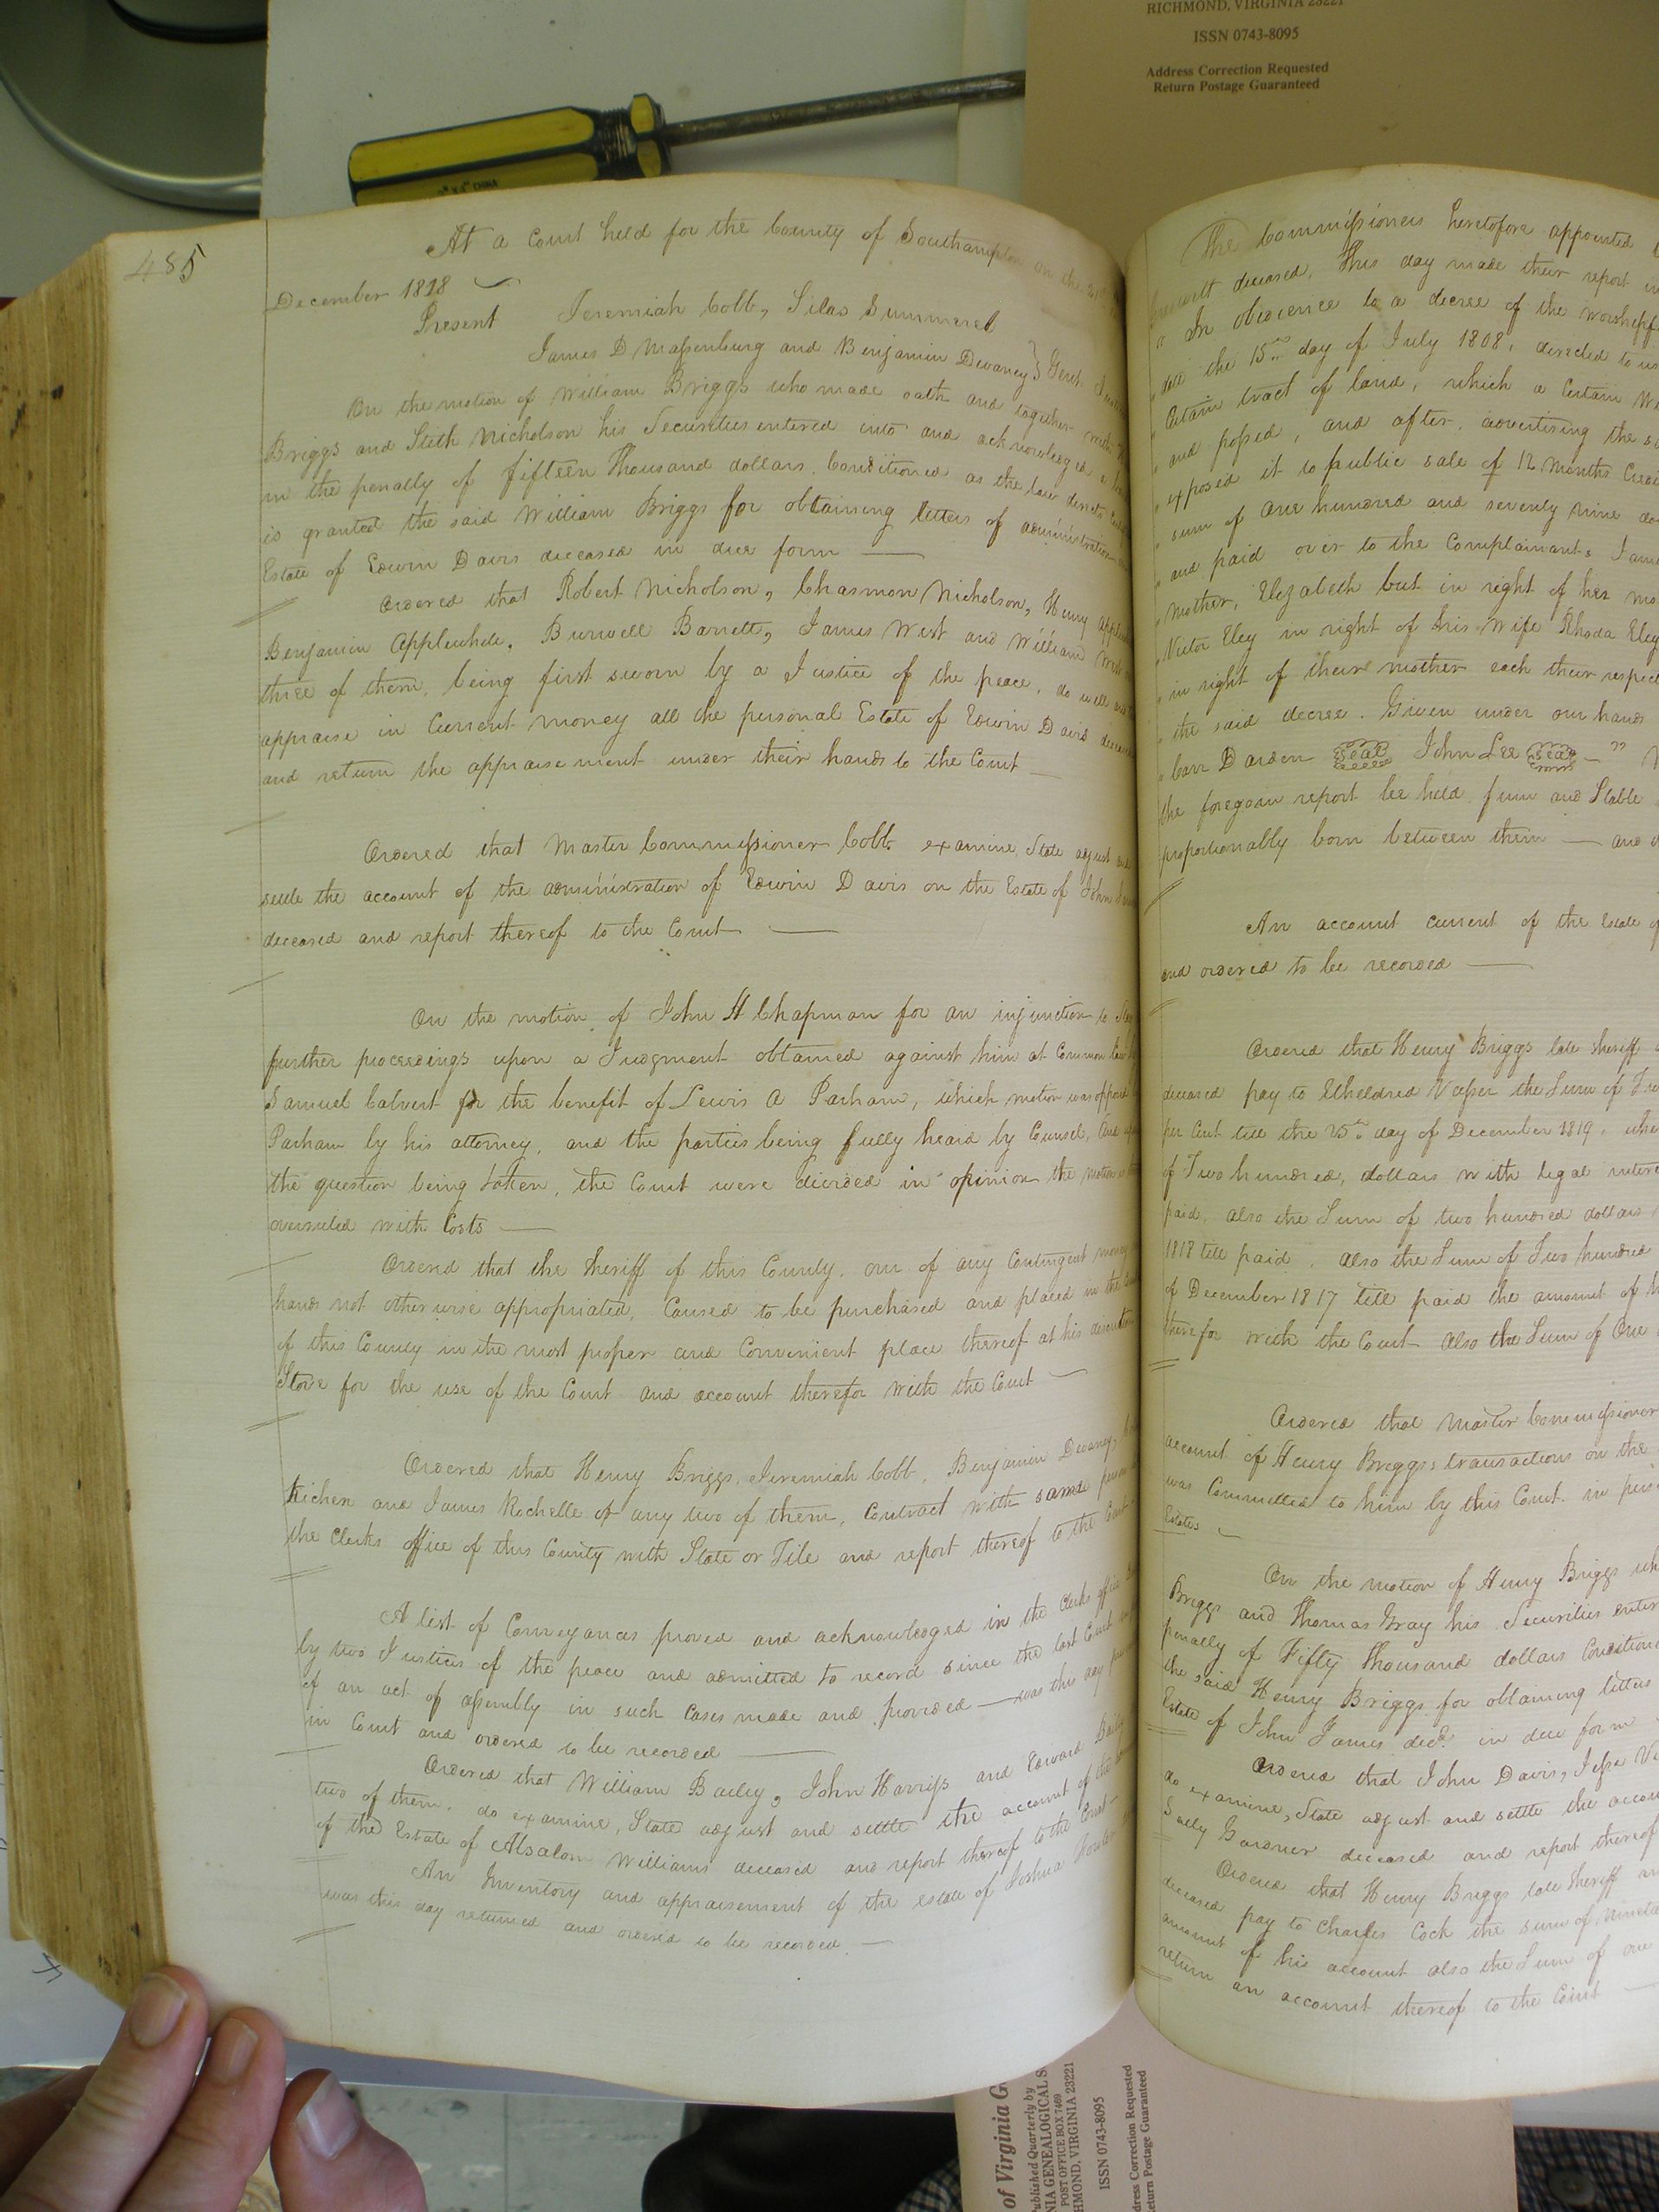 RICHMOND, VIRGINIA 23221
ISSN 0743-8095
Address Correction Requested
Return Postage Guaranteed
CHINA
485
At a Court held for the County of Southampton on the 21st
December 1818
Present Jeremiah Cobb, Silas Summerel
James D Massenburg and Benjamin Devaney } Gent.
On the motion of William Briggs who made oath and together with
Briggs and Stith Nicholson his Securities entered into and acknowledged a
in the penalty of fifteen Thousand dollars Conditioned as the law directs
is granted the said William Briggs for obtaining letters of administration
Estate of Edwin Davis deceased in due form
Ordered that Robert Nicholson, Chasmon Nicholson, Henry
Benjamin Applewhite, Burwell Barrett, James West and William
three of them, being first sworn by a Justice of the peace, do well and
appraise in Current money all the personal Estate of Edwin Davis
and return the appraisement under their hands to the Court
Ordered that Master Commissioner Cobb examine, State adjust and
settle the account of the administration of Edwin Davis on the Estate of John
deceased and report thereof to the Court
On the motion of John H Chapman for an injunction to
further proceedings upon a Judgment obtained against him at Common law
Samuel Calvert for the benefit of Lewis A Parham, which motion was
Parham by his attorney, and the parties being fully heard by Counsel, and
the question being taken, the Court were divided in opinion the motion
overruled with Costs
Ordered that the Sheriff of this County, out of any Contingent money
hands not otherwise appropriated, Caused to be purchased and placed in the
of this County in the most proper and Convenient place thereof at his discretion
Stove for the use of the Court and account therefor with the Court
Ordered that Henry Briggs, Jeremiah Cobb, Benjamin Devaney,
Kichen and James Rochelle or any two of them, Contract with some
the Clerks office of this County with Slate or Tile and report thereof to the Court
A list of Conveyances proved and acknowledged in the Clerks office
by two Justices of the peace and admitted to record since the last Court
of an act of assembly in such Cases made and provided was this day
in Court and ordered to be recorded
Ordered that William Bailey, John Harriss and Edward
two of them, do examine, State adjust and settle the account of the
of the Estate of Absalom Williams deceased and report thereof to the Court
An Inventory and appraisement of the estate of Joshua
was this day returned and ordered to be recorded
The Commissioners heretofore appointed
deceased, This day made their report
" In obedience to a decree of the worshipful
date the 15th day of July 1808, directed to us
Certain tract of land, which a Certain
" and posted, and after advertising the
" exposed it to public sale of 12 months
" sum of one hundred and seventy nine
" and paid over to the Complainants
" mother, Elizabeth but in right of her
" Victor Eley in right of his Wife Rhoda Eley
" in right of their mother each their
" the said decree. Given under our hands
" Carr Darden Seal John Lee Seal "
the foregoin report be held firm and Stable
proportionably born between them and
An account current of the Estate of
and ordered to be recorded
Ordered that Henry Briggs late Sheriff
deceased pay to Etheldred Vasser the Sum of
per Cent till the 25th day of December 1819,
of Two hundred, dollars with legal
paid, also the Sum of two hundred dollars
1818 till paid, also the Sum of Two hundred
of December 1817 till paid the amount of
therefor with the Court also the Sum of One
Ordered that Master Commissioner
account of Henry Briggs, transactions on the
was Committed to him by this Court in
Estates
On the motion of Henry Briggs
Briggs and Thomas Gray his Securities
penalty of Fifty Thousand dollars
the said Henry Briggs for obtaining letters
Estate of John James decd. in due form
Ordered that John Davis, Jesse
do examine, State adjust and settle the
Sally Gardner deceased and report thereof
Ordered that Henry Briggs late Sheriff
deceased pay to Charles Cock the sum of
amount of his account also the Sum of one
return an account thereof to the Court
of Virginia
Published Quarterly by
GENEALOGICAL
POST OFFICE BOX 7469
RICHMOND, VIRGINIA 23221
ISSN 0743-8095
Address Correction Requested
Return Postage Guaranteed